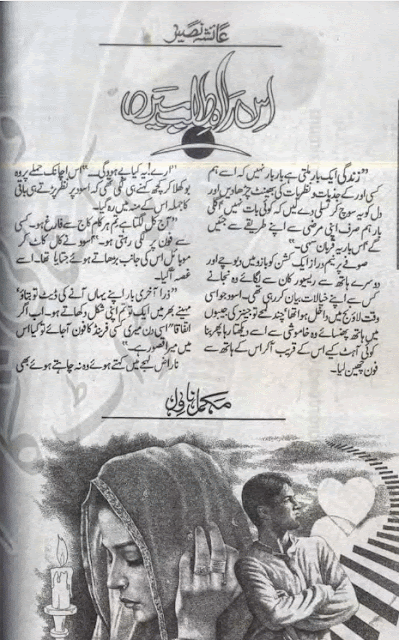 عائشہ نصیر
اس راہ طلب میں
"زندگی ایک بار ملتی ہے بار بار نہیں کہ اسے ہم
کسی اور کے جذبات و نظریات کی بھینٹ چڑھا دیں اور
دل کو یہ سوچ کر تسلی دے لیں کہ کوئی بات نہیں اگلی
بار ہم صرف اپنی مرضی سے اپنے طریقے سے جئیں
گے اس بار یہ قربانی سہی۔"
صوفے پر نیم دراز ایک کشن کو بازو میں دبوچے اور
دوسرے ہاتھ سے ریسیور کان سے لگائے وہ نجانے
کس سے اپنے خیالات بیان کر رہی تھی۔ اسود جو اسی
وقت لاؤنج میں داخل ہوا تھا چند لمحے تو جینز کی جیبوں
میں ہاتھ پھنسائے وہ خاموشی سے اسے دیکھتا رہا پھر بنا
کوئی آہٹ کیے اس کے قریب آ کر اس کے ہاتھ سے
فون چھین لیا۔
"ارے! یہ کیا بے ہودگی۔۔" اس اچانک حملے پر وہ
بوکھلا کر کچھ کہنے ہی لگی تھی کہ اسود پر نظر پڑتے ہی باقی
کا جملہ اس کے منہ میں رہ گیا۔
"آج کل لگتا ہے تم ہر کام کاج سے فارغ ہو۔ کسی
سے فون پر لگی رہتی ہو۔" اسود نے کال کاٹ کر
موبائل اس کی جانب بڑھاتے ہوئے جتایا تھا۔ اسے
غصہ آ گیا۔
"ذرا آخری بار اپنے یہاں آنے کی ڈیٹ تو بتاؤ؟
مہینے بھر میں ایک تو تم اپنی شکل دکھاتے ہو۔ اب اگر
اتفاقاً اسی دن میری کسی فرینڈ کا فون آ جائے تو کیا اس
میں میرا قصور ہے۔"
ناراض لہجے میں کہتے ہوئے وہ نہ چاہتے ہوئے بھی
مکمل ناول